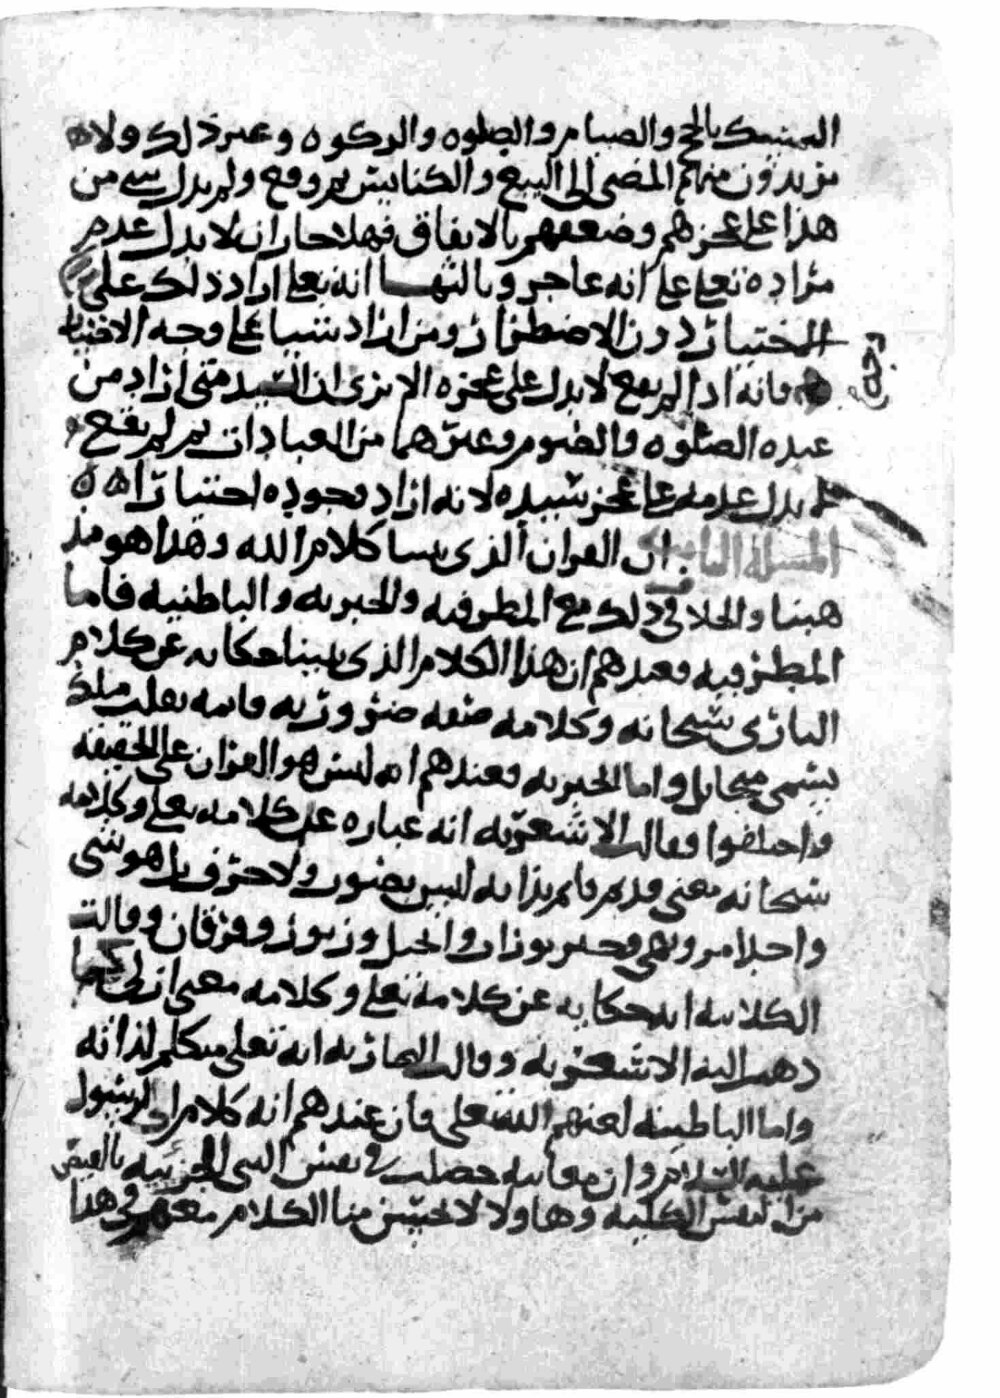 التمسك بالحج والصيام والصلوه والزكوه وغير ذلك ولا
يريدون منهم المضي الى البيع والكنايس ثم وقع ولم يدل شي من
هذا على عجزهم وضعفهم بالاتفاق فهلا جاز انه لا يدل عدم
مراده تعلى على انه عاجز وثالثها انه تعلى اراد ذلك على
الاختيار دون الاضطرار ومن اراد شيا على وجه الاختيار
فانه اذا لم يقع لا يدل على عجزه الا ترى ان السيد متى اراد من
عبده الصلوه والصوم وغيرهما من العبادات ثم لم يقع
لم يدل عدمه على عجز سيده لانه اراد وجوده اختيارا
المسئلة ان القران الذي بيننا كلام الله وهذا هو مذ
هبنا والخلاف في ذلك مع المطرفيه والجبريه والباطنيه فاما
المطرفيه فعندهم ان هذا الكلام الذي بيننا حكايه عن كلام
الباري سبحانه وكلامه صفه ضروريه قايمه بقلب ملك
يسمى ميخايل واما الجبريه فعندهم انه ليس هو القران على الحقيقه
واختلفوا فقالت الاشعريه انه عباره عن كلامه تعلى وكلامه
سبحانه معنى قديم قايم بذاته ليس بصوت ولا حرف بل هو شي
واحد امر ونهي وخبر توراه وانجيل وزبور وفرقان وقالت
الكلابيه انه حكايه عن كلامه تعلى وكلامه معنى ازلي كما
ذهب اليه الاشعريه وقالت انه تعلى متكلم لذاته
واما الباطنيه لعنهم الله تعلى فان عندهم انه كلام الرسول
عليه السلام وان معانيه حصلت في نفس النبي الجزييه بالفيض
من النفس الكليه وهاولا لا يحسن منا الكلام معهم في هذا
وجه